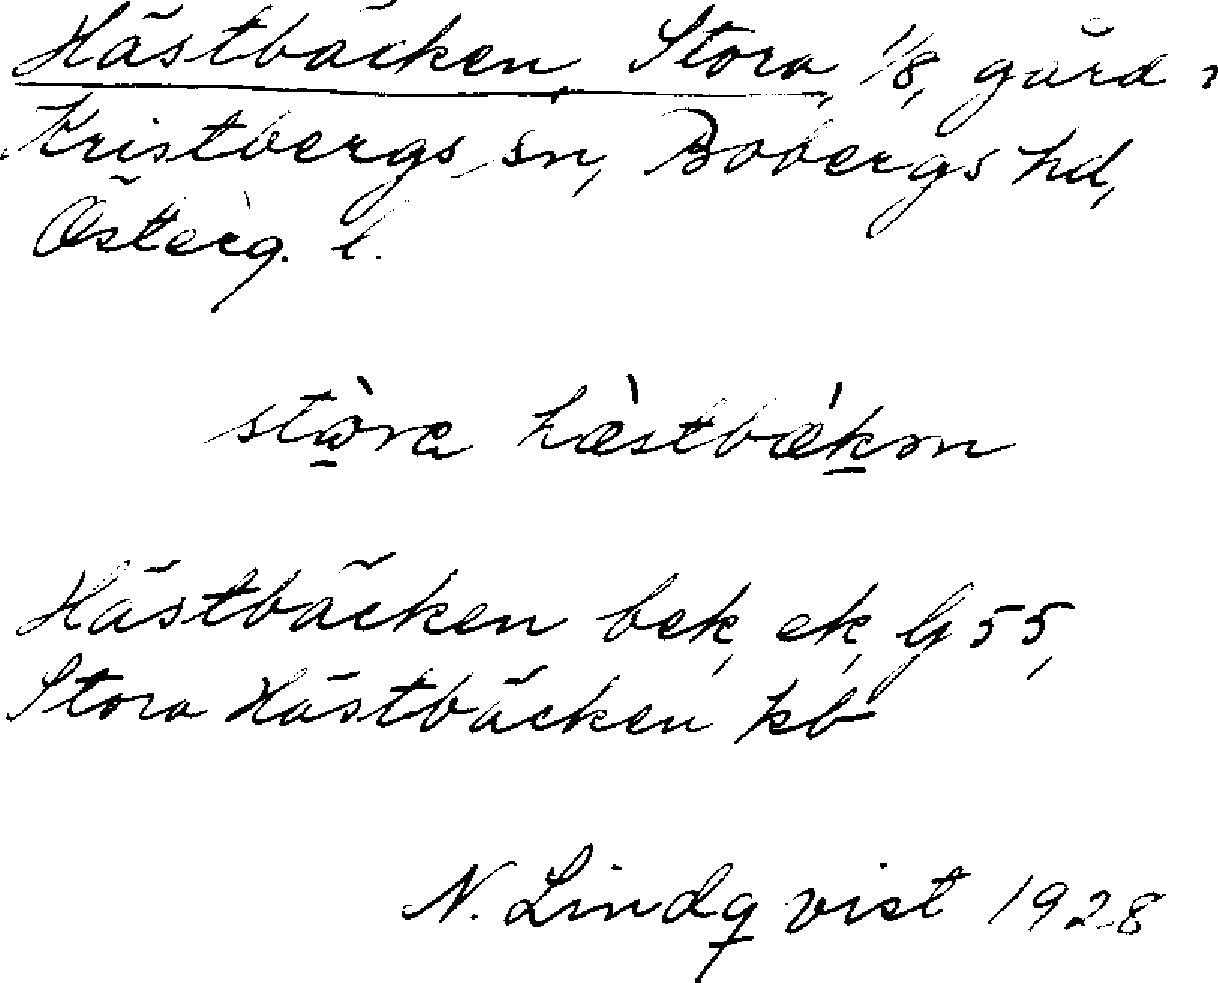 Hästbäcken, Stora, 1/8, gård i
Kristbergs sn, Bobergs hd,
Österg. l.
stὼra hæ̀stbǽkən
Hästbäcken bek, ek, G 55,
Stora Hästbäcken kb
N. Lindqvist 1928